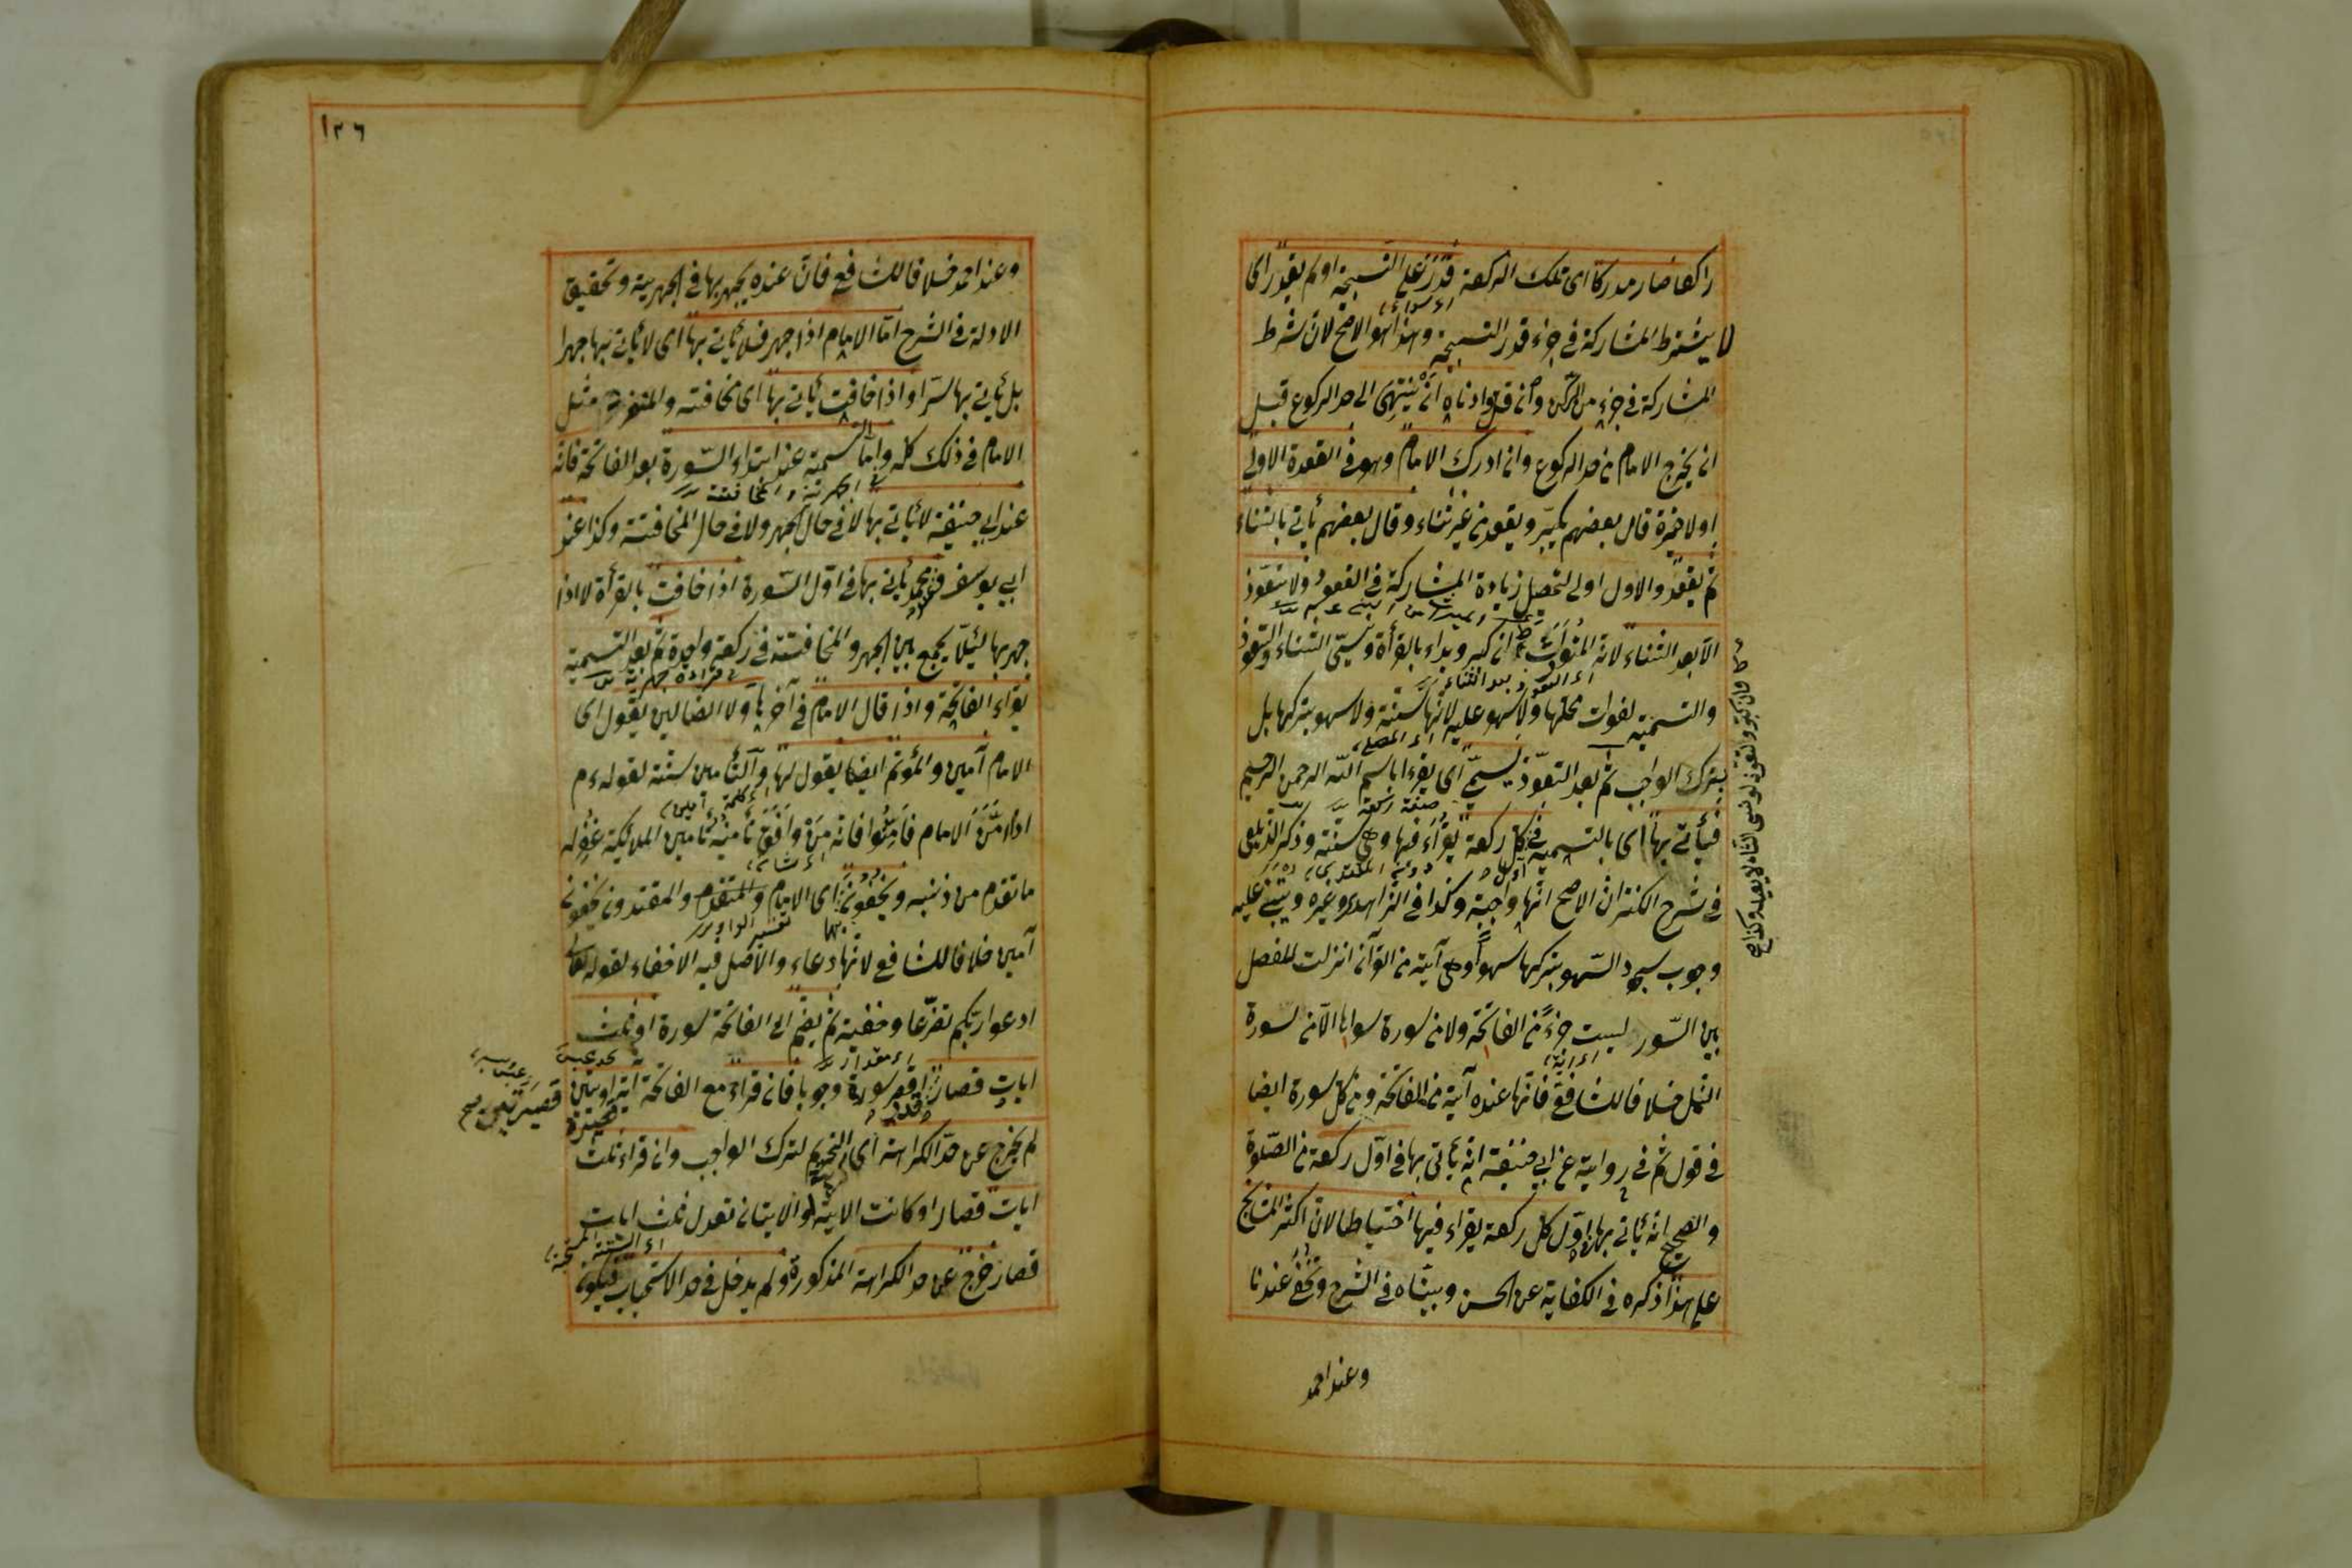 راكعا صار مدركا اى تلك الركعة قدر على التسبيحة او لم يقدر اى
لا يشترط المشاركة فى جزء قدر التسبيحة وهذا هو الاصح لان شرط
المشاركة فى جزء من الركن وان قل وادناه ان ينتهى الى حد الركوع قبل
ان يخرج الامام من حد الركوع وان ادرك الامام وهو فى القعدة الاولى
او الاخيرة قال بعضهم يكبر ويقعد من غير ثناء وقال بعضهم يأتى بالثناء
ثم يقعد والاول اولى لتحصيل زيادة المشاركة فى القعود ولا يتعوذ
الا بعد الثناء لانه المتوارث ان كبر وبداء بالقرأة ونسى الثناء والتعوذ
والتسمية لفوات محلها ولا سهو عليه لانها سنة ولا سهو بتركها بل
بترك الواجب ثم بعد التعوذ يسمى اى يقراء بسم الله الرحمن الرحيم
فيأتى بها اى بالتسمية فى كل ركعة يقراء فيها وهى سنة وذكر الزيلعى
فى شرح الكنز ان الاصح انها واجبة وكذا فى الزاهدى وغيره ويبتنى عليه
وجوب سجود السهو بتركها سهوا وهى آية من القرآن انزلت للفصل
بين السور ليست جزء من الفاتحة ولا من سورة سواها الا من سورة
النمل خلافا للشافعى فانها عنده آية من الفاتحة ومن كل سورة ايضا
فى قول ثم فى رواية عن ابى حنيفة انه يأتى بها فى اول ركعة من الصلوة
والصحيح انه يأتى بها اول كل ركعة يقراء فيها احتياطا لان اكثر المشايخ
على هذا ذكره فى الكفاية عن الحسن وبيناه فى الشرح وتخفى عندنا
وعند احمد
١٢٦
وعند احمد خلافا للشافعى فان عنده يجهر بها فى الجهرية وتحقيق
الادلة فى الشرح اما الامام اذا جهر فلا يأتى بها اى لا يأتى بها جهرا
بل يأتى بها سرا واذا خافت يأتى بها اى مخافتة والمنفرد مثل
الامام فى ذلك كله واما التسمية عند ابتداء السورة بعد الفاتحة فانه
عند ابى حنيفة لا يأتى بها لا فى حال الجهر ولا فى حال المخافتة وكذا عند
ابى يوسف وعند محمد يأتى بها فى اول السورة اذا خافت بالقرأة لا اذا
جهر بها لئلا يجمع بين الجهر والمخافتة فى ركعة واحدة ثم بعد التسمية
يقراء الفاتحة واذا قال الامام فى آخرها ولا الضالين يقول اى
الامام آمين والمؤتم ايضا يقول لها والتأمين سنة لقوله ءم
اذا امن الامام فامنوا فانه من وافق تأمينه تأمين الملائكة غفر له
ما تقدم من ذنبه ويخفونها اى الامام والمنفرد والمقتدون يخفون
آمين خلافا للشافعى لانها دعاء والاصل فيه الاخفاء لقوله تعالى
ادعوا ربكم تضرعا وخفية ثم يضم الى الفاتحة سورة او ثلث
ايات قصار اقصر سورة وجوبا فان قراء مع الفاتحة اية او ايتين
لم يخرج عن حد الكراهة اى التحريم لترك الواجب وان قراء ثلث
ايات قصار او كانت الاية او الايتان تعدل ثلث ايات
قصار خرج عن حد الكراهة المذكورة ولم يدخل فى حد الاستحباب فيكون